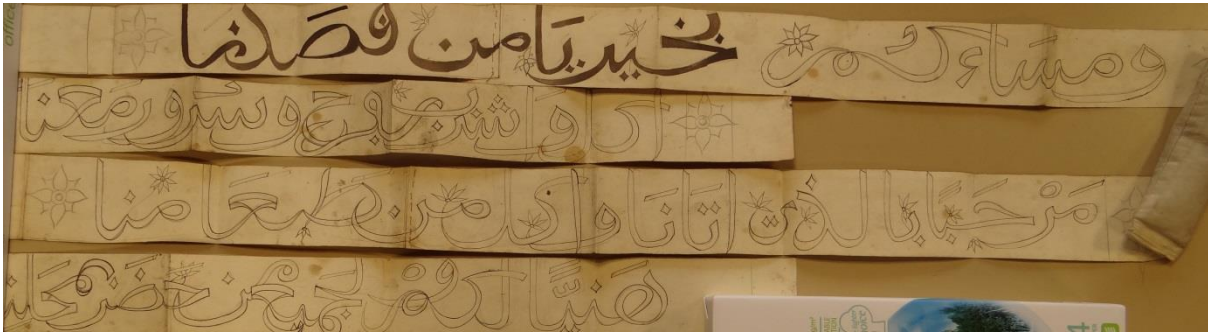 ومساءكم بخير يا من قصدنا
واشرب بفرح وسرور معنا
مرحبًا بالذي اتانا واكل من طعامنا
هنيًّا لكم جميع من حضر
office